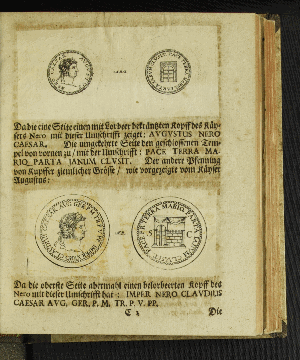 Da die eine Seite einen mit Lorbeer bekränßten Kopff des Käy-
sers Nero mit dieser Umschrifft zeiget: AVGVSTUS NERO
CAESAR. Die umgekehrte Seite den geschlossenen Tem-
pel von vornen zu / mit der Umschrifft: PACE TERRA MA-
RIQ PARTA IANUM CLVSIT. Der andere Pfenning
von Kupffer ziemlicher Grösse / wie vorgezeigt vom Käyser
Augustus:
S C
Da die oberste Seite abermahl einen belorbeerten Kopff des
Nero mit dieser Umschrifft hat: IMPER NERO CLAVDIUS
CAESAR AVG. GER. P. M. TR. P. V. PP.
C 3 Die